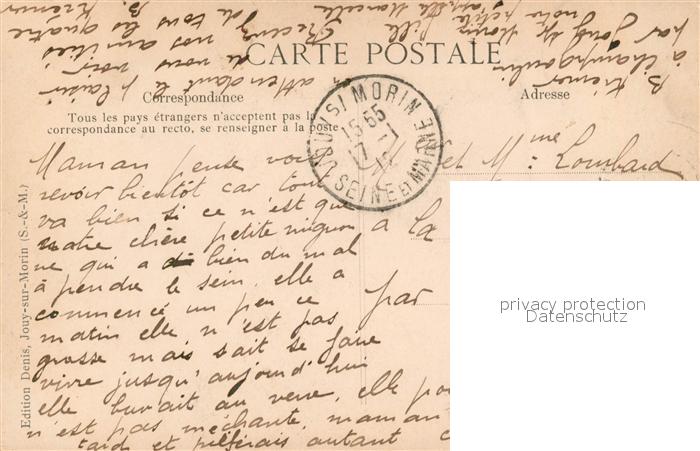 CARTE POSTALE
Correspondance
Adresse
Tous les pays étrangers n'acceptent pas la
correspondance au recto, se renseigner à la poste
Edition Denis, Jouy-sur-Morin (S.-&-M.)
JOUY S/ MORIN
15 55
17
SEINE ET MARNE
et Mme Lombard
à la
par
Maman pense vous
revoir bientôt car tout
va bien si ce n'est que
notre chère petite mignonne
qui a bien du mal
à prendre le sein, elle a
commencé un peu ce
matin elle n'est pas
grosse mais sait se faire
vivre jusqu'aujourd'hui
elle buvait au verre, elle
n'est pas méchante, maman
tard et autant
en attendant le plaisir
de vous voir
Recevez nos amitiés
de tous les quatre
B.
par Jouy s/ Morin
notre petite fille
privacy protection
Datenschutz